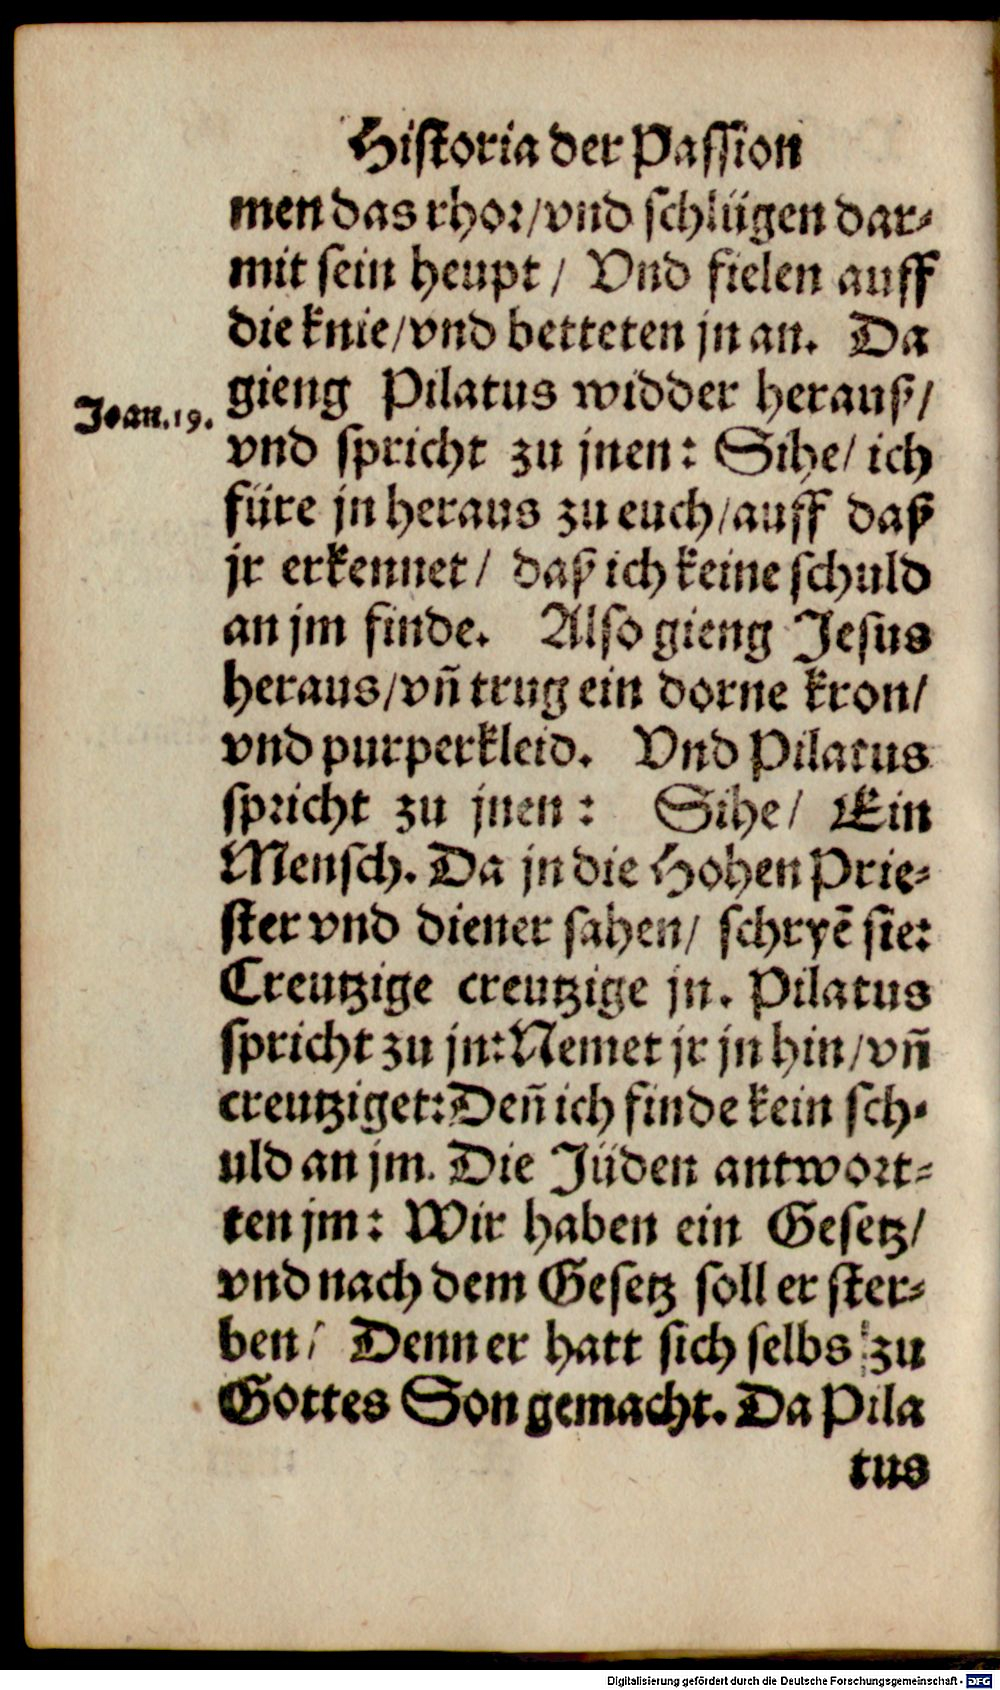 Historia der Passion
men das rhor/vnd schlügen dar-
mit sein heupt / Vnd fielen auff
die knie/vnd betteten jn an. Da
gieng Pilatus widder herauß/
Joan.19.
vnd spricht zu jnen: Sihe/ ich
füre jn heraus zu euch/auff daß
jr erkennet/ daß ich keine schuld
an jm finde. Also gieng Jesus
heraus/vñ trug ein dorne kron/
vnd purperkleid. Vnd Pilatus
spricht zu jnen: Sihe/ Ein
Mensch. Da jn die Hohen Prie-
ster vnd diener sahen/ schryē sie:
Creutzige creutzige jn. Pilatus
spricht zu jn: Nemet jr jn hin/vñ
creutziget: Deñ ich finde kein sch-
uld an jm. Die Jüden antwort-
ten jm: Wir haben ein Gesetz/
vnd nach dem Gesetz soll er ster-
ben/ Denn er hatt sich selbs zu
Gottes Son gemacht. Da Pila
tus
Digitalisierung gefördert durch die Deutsche Forschungsgemeinschaft - DFG